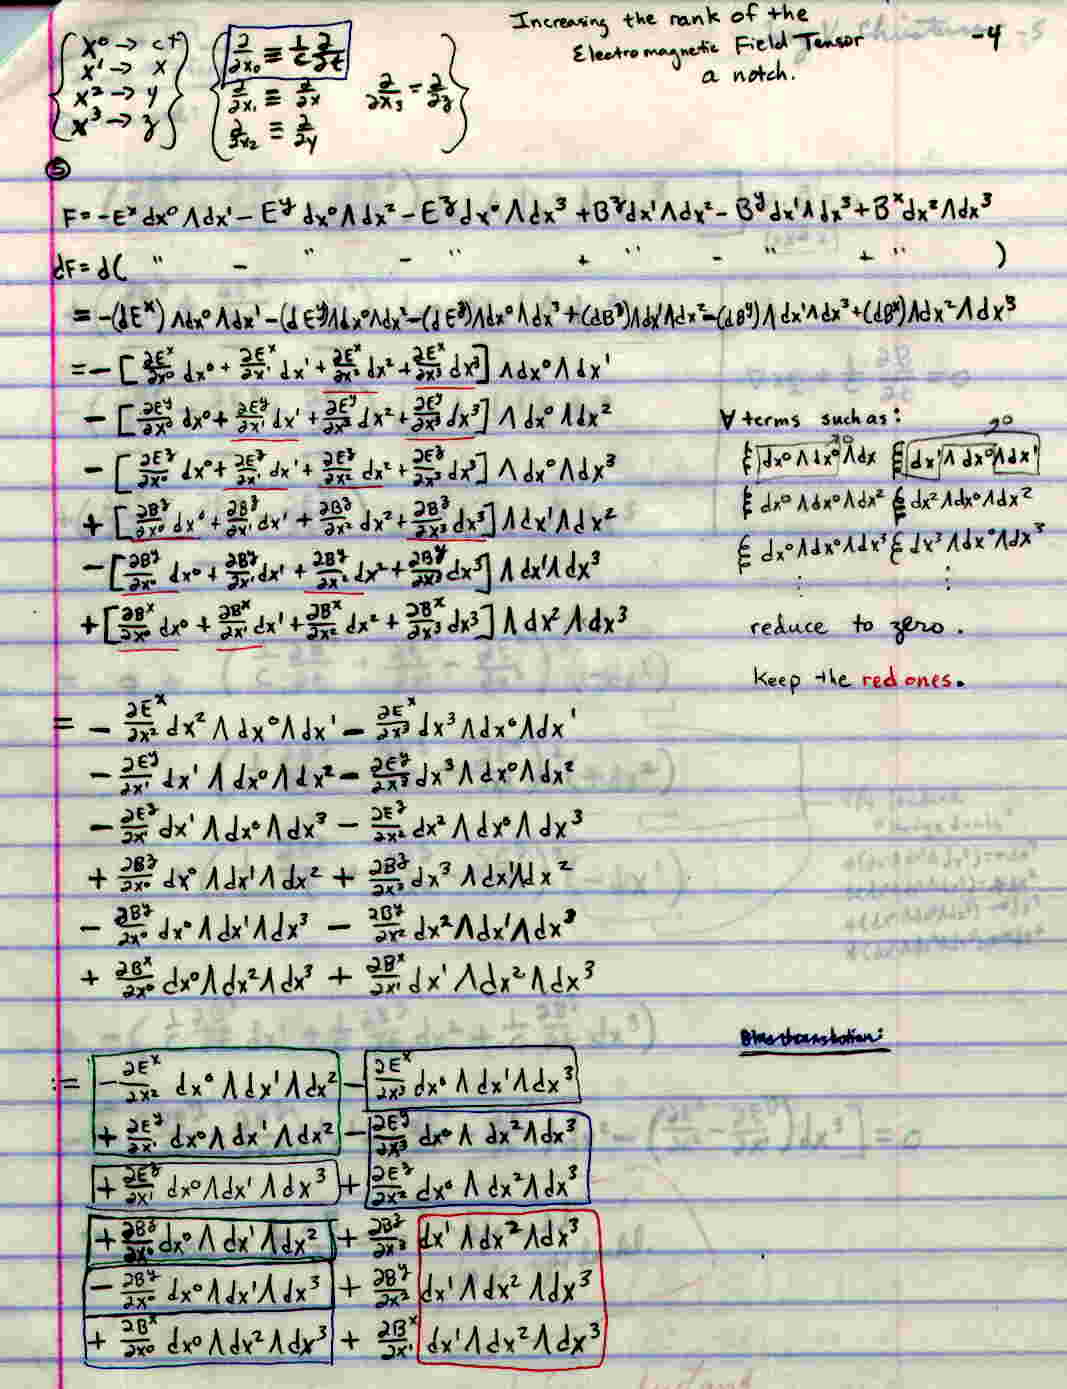 Increasing the rank of the
Electromagnetic Field Tensor -4
a notch.
x⁰ → ct
x¹ → x
x² → y
x³ → z
∂/∂x₀ ≡ 1/c ∂/∂t
∂/∂x₁ ≡ ∂/∂x ∂/∂x₃ = ∂/∂z
∂/∂x₂ ≡ ∂/∂y
⑤
F = -Eˣ dx⁰ Λ dx¹ - Eʸ dx⁰ Λ dx² - Eᶻ dx⁰ Λ dx³ + Bᶻ dx¹ Λ dx² - Bʸ dx¹ Λ dx³ + Bˣ dx² Λ dx³
dF = d( " - " - " + " - " + " )
= -(dEˣ) Λ dx⁰ Λ dx¹ - (dEʸ) Λ dx⁰ Λ dx² - (dEᶻ) Λ dx⁰ Λ dx³ + (dBᶻ) Λ dx¹ Λ dx² - (dBʸ) Λ dx¹ Λ dx³ + (dBˣ) Λ dx² Λ dx³
= - [∂Eˣ/∂x⁰ dx⁰ + ∂Eˣ/∂x¹ dx¹ + ∂Eˣ/∂x² dx² + ∂Eˣ/∂x³ dx³] Λ dx⁰ Λ dx¹
- [∂Eʸ/∂x⁰ dx⁰ + ∂Eʸ/∂x¹ dx¹ + ∂Eʸ/∂x² dx² + ∂Eʸ/∂x³ dx³] Λ dx⁰ Λ dx²
- [∂Eᶻ/∂x⁰ dx⁰ + ∂Eᶻ/∂x¹ dx¹ + ∂Eᶻ/∂x² dx² + ∂Eᶻ/∂x³ dx³] Λ dx⁰ Λ dx³
+ [∂Bᶻ/∂x⁰ dx⁰ + ∂Bᶻ/∂x¹ dx¹ + ∂Bᶻ/∂x² dx² + ∂Bᶻ/∂x³ dx³] Λ dx¹ Λ dx²
- [∂Bʸ/∂x⁰ dx⁰ + ∂Bʸ/∂x¹ dx¹ + ∂Bʸ/∂x² dx² + ∂Bʸ/∂x³ dx³] Λ dx¹ Λ dx³
+ [∂Bˣ/∂x⁰ dx⁰ + ∂Bˣ/∂x¹ dx¹ + ∂Bˣ/∂x² dx² + ∂Bˣ/∂x³ dx³] Λ dx² Λ dx³
∀ terms such as:
ξ dx⁰ Λ dx⁰ Λ dx ξ dx¹ Λ dx⁰ Λ dx¹
ξ dx⁰ Λ dx⁰ Λ dx² ξ dx² Λ dx⁰ Λ dx²
ξ dx⁰ Λ dx⁰ Λ dx³ ξ dx³ Λ dx⁰ Λ dx³
⋮ ⋮
reduce to zero.
Keep the red ones.
= - ∂Eˣ/∂x² dx² Λ dx⁰ Λ dx¹ - ∂Eˣ/∂x³ dx³ Λ dx⁰ Λ dx¹
- ∂Eʸ/∂x¹ dx¹ Λ dx⁰ Λ dx² - ∂Eʸ/∂x³ dx³ Λ dx⁰ Λ dx²
- ∂Eᶻ/∂x¹ dx¹ Λ dx⁰ Λ dx³ - ∂Eᶻ/∂x² dx² Λ dx⁰ Λ dx³
+ ∂Bᶻ/∂x⁰ dx⁰ Λ dx¹ Λ dx² + ∂Bᶻ/∂x³ dx³ Λ dx¹ Λ dx²
- ∂Bʸ/∂x⁰ dx⁰ Λ dx¹ Λ dx³ - ∂Bʸ/∂x² dx² Λ dx¹ Λ dx³
+ ∂Bˣ/∂x⁰ dx⁰ Λ dx² Λ dx³ + ∂Bˣ/∂x¹ dx¹ Λ dx² Λ dx³
:= - ∂Eˣ/∂x² dx⁰ Λ dx¹ Λ dx² - ∂Eˣ/∂x³ dx⁰ Λ dx¹ Λ dx³
+ ∂Eʸ/∂x¹ dx⁰ Λ dx¹ Λ dx² - ∂Eʸ/∂x³ dx⁰ Λ dx² Λ dx³
+ ∂Eᶻ/∂x¹ dx⁰ Λ dx¹ Λ dx³ + ∂Eᶻ/∂x² dx⁰ Λ dx² Λ dx³
+ ∂Bᶻ/∂x⁰ dx⁰ Λ dx¹ Λ dx² + ∂Bᶻ/∂x³ dx¹ Λ dx² Λ dx³
- ∂Bʸ/∂x⁰ dx⁰ Λ dx¹ Λ dx³ + ∂Bʸ/∂x² dx¹ Λ dx² Λ dx³
+ ∂Bˣ/∂x⁰ dx⁰ Λ dx² Λ dx³ + ∂Bˣ/∂x¹ dx¹ Λ dx² Λ dx³